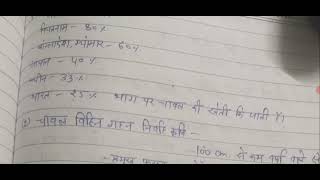 वियतनाम - 80%
- बांग्लादेश, म्यांमार - 60%
- जापान - 40%
- चीन - 33%
- भारत - 25% भाग पर चावल की खेती कि जाती है।
(2) चावल विहिन गहन निर्वाह कृषि -
100 cm से कम वर्षा वाले